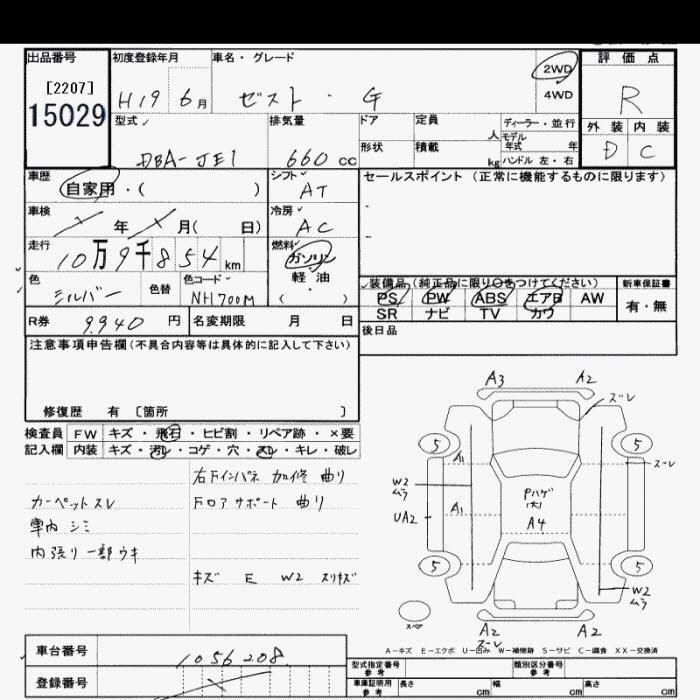 出品番号 初度登録年月 車名・グレード 2WD 評価点
[2207] 15029 H19 6月 ゼスト・G 4WD R
型式 排気量 ドア 定員 人 ディーラー・並行 外装 内装
DBA-JE1 660cc 形状 積載 kg モデル年式 年 ハンドル 左・右 D C
車歴 自家用・( ) シフト AT セールスポイント (正常に機能するものに限ります)
車検 年 月( 日) 冷房 AC
走行 10万9千854km 燃料 ガソリン・軽油 ( )
色 シルバー 色替 色コード NH700M
装備品 (純正品に限り○をつけてください) 新車保証書
PS PW ABS エアB AW 有・無
SR ナビ TV カワ
R券 9.940円 名変期限 月 日 後日品
注意事項申告欄(不具合内容等は具体的に記入して下さい)
修復歴 有 〔箇所 〕
検査員 FW キズ・飛石・ヒビ割・リペア跡・×要
記入欄 内装 キズ・汚レ・コゲ・穴・スレ・キレ・破レ
右下インパネ 加修 曲り
カーペットスレ Fロアサポート 曲り
車内シミ
内張り一部ウキ
キズ E W2 スリキズ
A3 A2 ズレ
5 5
A1 ズレ
W2 ムラ
Pハゲ (大)
UA2 A1 A4
5 5
W2 ムラ
スペア A2 ズレ A2
A-キズ E-エクボ U-凹み W-補修跡 S-サビ C-腐食 XX-交換済
車台番号 1056208
登録番号
型式指定番号 参考 類別区分番号 参考
車庫証明用 参考 長さ cm 幅 cm 高さ cm